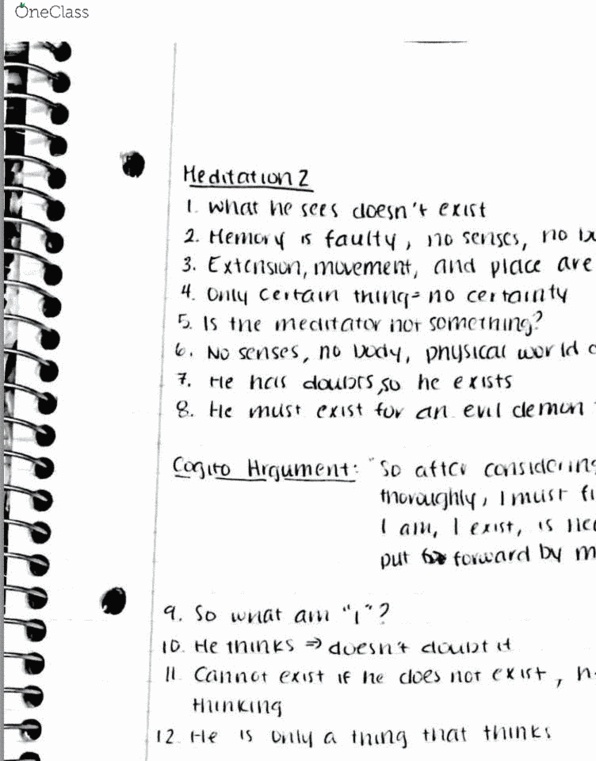 OneClass
Meditation 2
1. What he sees doesn't exist
2. Memory is faulty, no senses, no
3. Extension, movement, and place are
4. Only certain thing = no certainty
5. Is the meditator not something?
6. No senses, no body, physical world
7. He has doubts, so he exists
8. He must exist for an evil demon
Cogito Argument: "So after considering
thoroughly, I must
I am, I exist, is
put forward by
9. So what am "I"?
10. He thinks ⇒ doesn't doubt it
11. Cannot exist if he does not exist,
thinking
12. He is only a thing that thinks